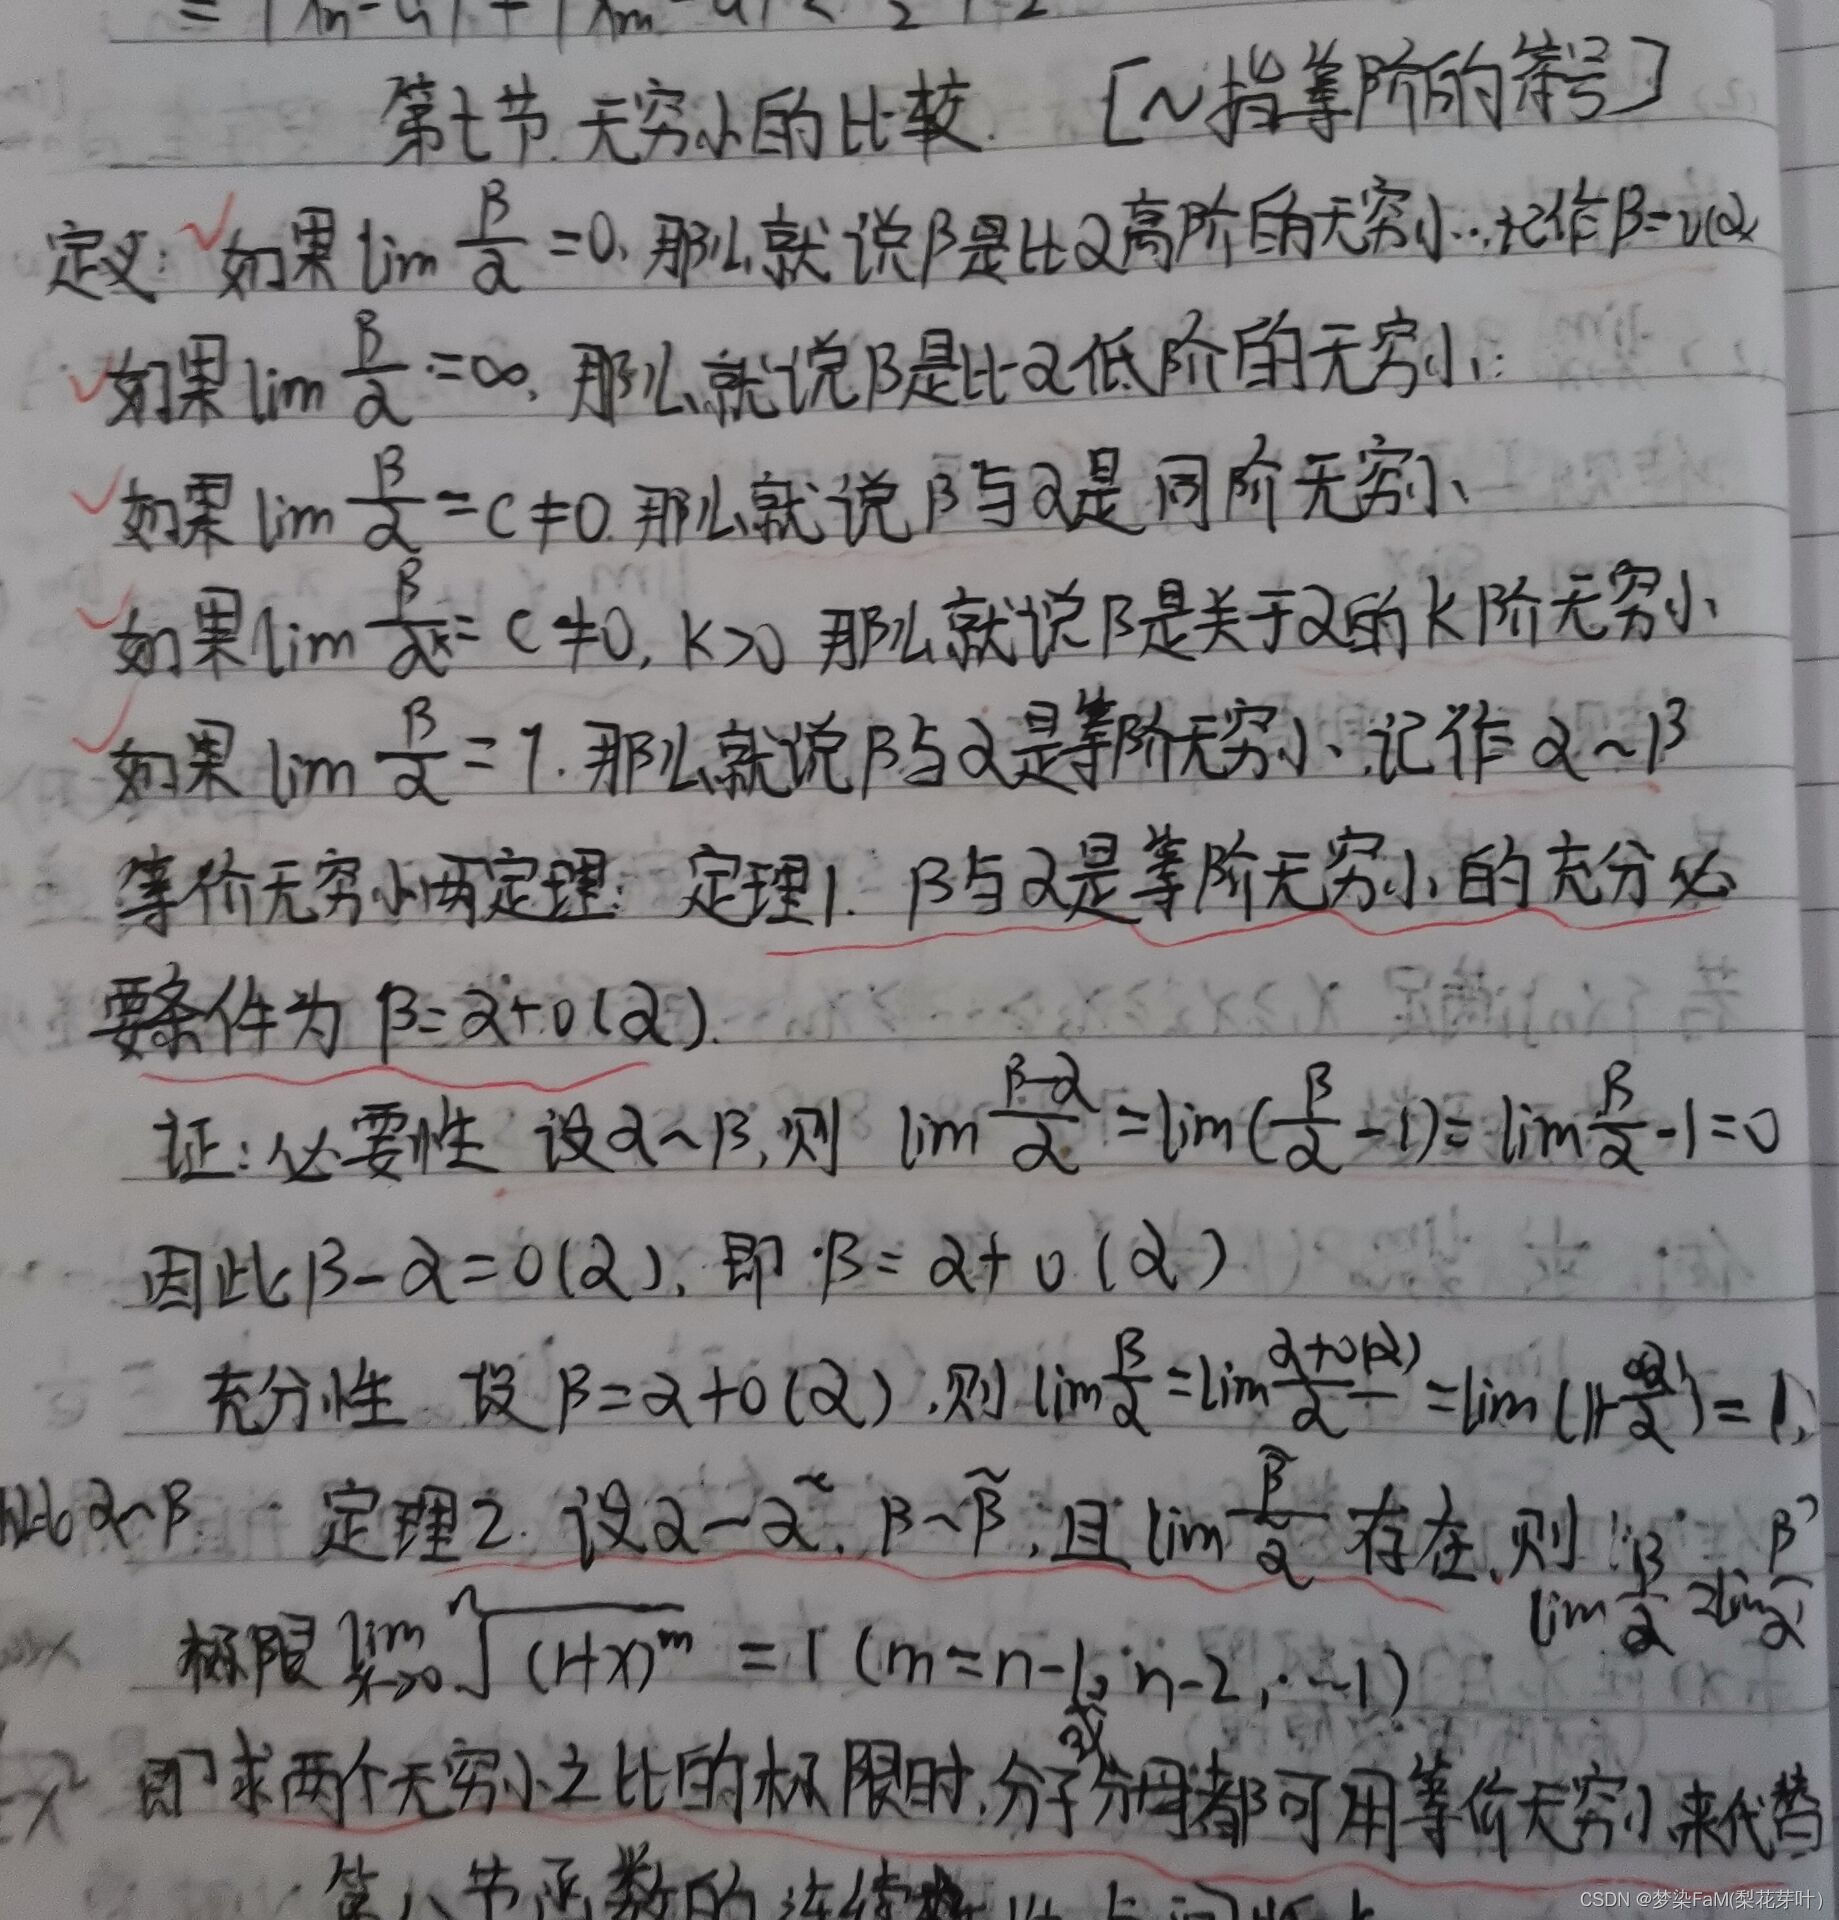 = |xn-a|+|xm-a|< 2 + 2
第七节 无穷小的比较. [~指等阶的符号]
定义: 如果lim β/α =0, 那么就说β是比α高阶的无穷小.. 记作β=o(α
如果lim β/α =∞, 那么就说β是比α低阶的无穷小.
如果lim β/α =C≠0. 那么就说β与α是同阶无穷小、
如果lim β/α^k = C≠0, K>0 那么就说β是关于α的K阶无穷小、
如果lim β/α =1. 那么就说β与α是等阶无穷小、记作α~β
等价无穷小两定理: 定理1. β与α是等阶无穷小的充分必
要条件为 β=α+o(α).
证: 必要性 设α~β, 则 lim (β-α)/α =lim(β/α -1)= lim β/α -1=0
因此β-α=o(α), 即 β=α+o(α)
充分性 设β=α+o(α), 则lim β/α =lim (α+o(α))/α =lim (1+ o(α)/α)=1,
因此α~β. 定理2. 设α~α̃, β~β̃, 且lim β̃/α̃ 存在, 则
lim β/α =lim β̃/α̃
极限 lim x→0 ⁿ√(1+x)^m = 1 (m=n-1, n-2, ...1)
或
即求两个无穷小之比的极限时, 分子分母都可用等价无穷小来代替
第八节 函数的连续性与间断点
CSDN @梦染FaM(梨花芽叶)